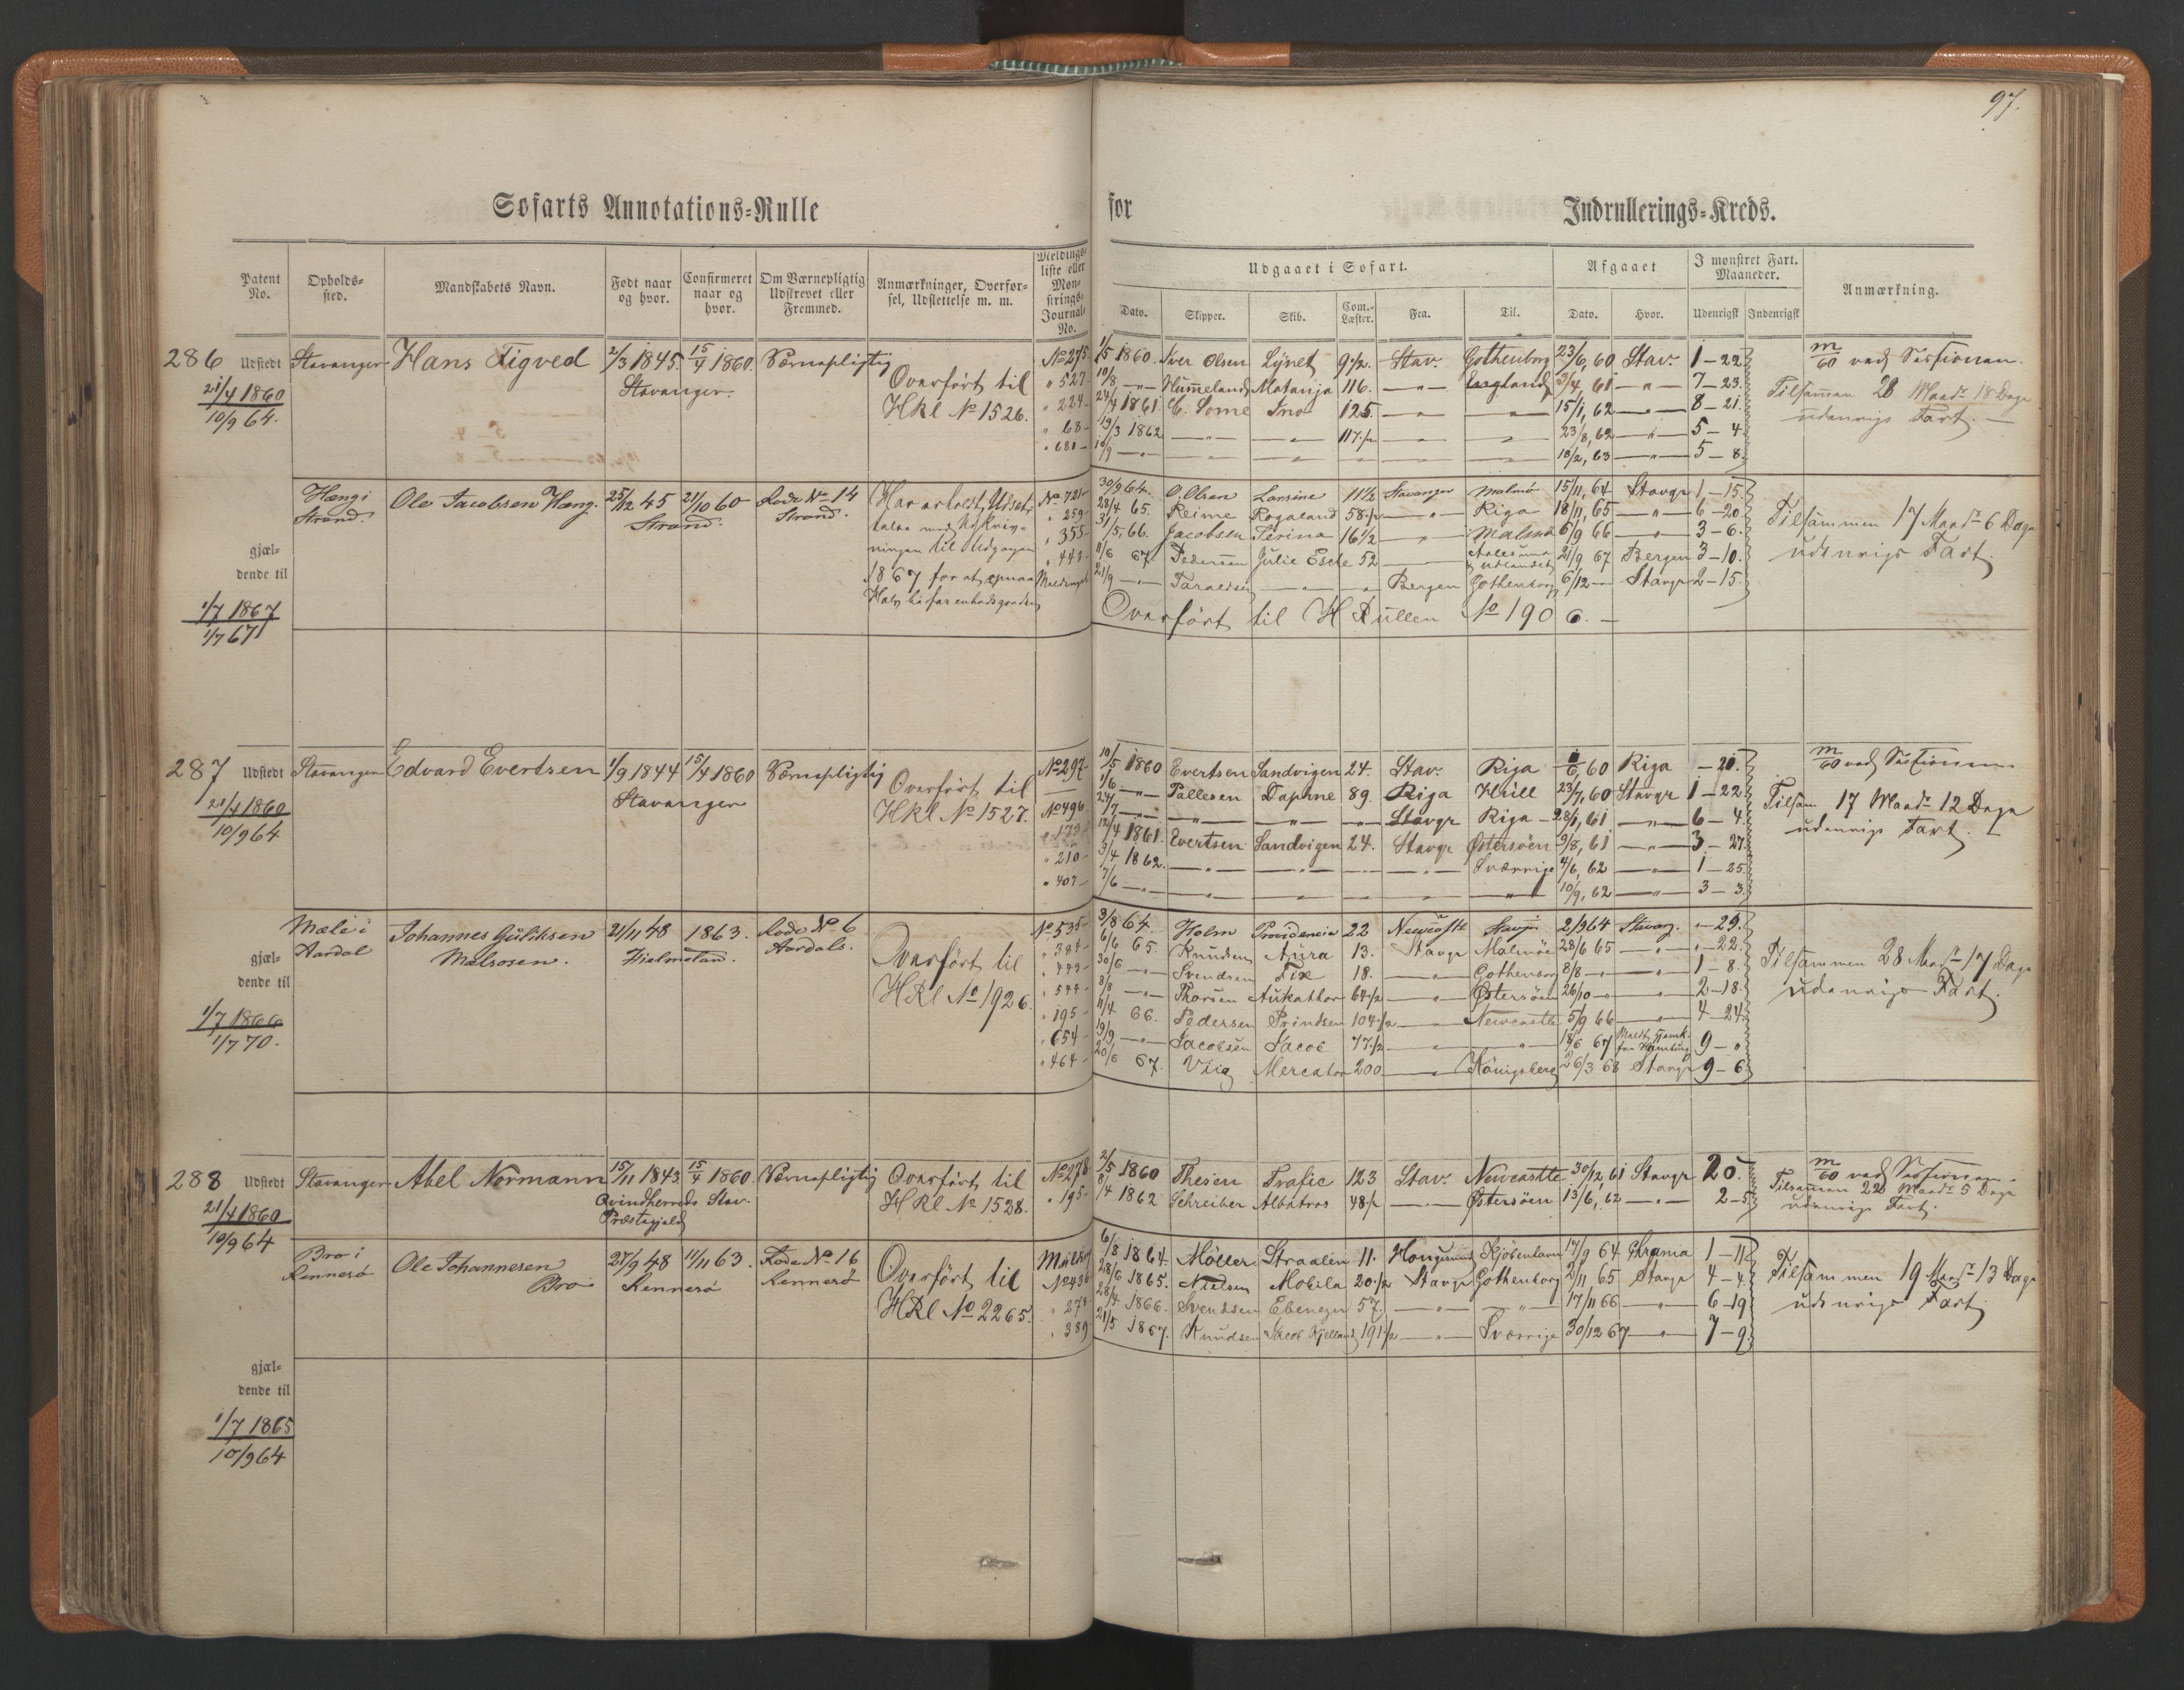 97.
Søfarts Annotations-Rulle for Indrullerings-Kreds.
Patent No. Opholds-sted. Mandskabets Navn. Født naar og hvor. Confirmeret naar og hvor. Om Værnepligtig Udskrevet eller Fremmed. Anmærkninger, Overførsel, Udslettelse m. m. Meldingsliste eller Mønstrings-Journal-No.
Udgaaet i Søfart. Dato. Skipper. Skib. Com.-Læster. Fra. Til. Afgaaet Dato. Hvor. I mønstret Fart. Maaneder. Udenrigsk Indenrigsk Anmærkning.
286 Udstedt 21/4 1860 10/9 64.
Stavanger Hans Tigved 2/3 1845. 15/4 1860. Værnepligtig
Stavanger.
Overført til
HRl No 1526.
No 275 1/5 1860. Iver Olsen Lynet 9 1/2. Stav. Gothenborg 23/6, 60 Stav. 1 – 22
" 527 10/8 — " — Hummeland Matanja 116. — " — England 3/4, 61 — " — 7 – 23.
" 224 24/4 1861. C. Some Ino 125. — " — — " — 15/1, 62 — " — 8 – 21.
" 68 13/3 1862 — " — — " — 117 1/2 — " — — " — 23/8, 62 — " — 5 – 4
" 681 10/9 — " — 18/2, 63 — " — 5 – 8.
m/60 ved Sessionen.
Tilsammen 28 Maadr 18 Dage
udenrigs Fart. —
gjæl-
dende til
1/7 1867
1/7 67
Hæng i
Strand.
Ole Jacobsen Hæng. 25/12 45 21/10 60 Rode No 14
Strand. Strand.
1867 for at opnaa
No 721 30/9 64. O. Olsen Larsine 11 1/2 Stavanger Malmø 15/11, 64 Stavgr 1, – 15.
" 259 28/4 65. Reime Rogaland 58 1/2 — " — Riga 18/11, 65 — " — 6 – 20
" 355 31/5, 66. Jacobsen Serina 16 1/2 — " — Malmø 6/9 66 — " — 3 – 6.
" 443 11/6 67. Pedersen Julie 52 — 21/9 67 Bergen 3 – 10.
21/9 — " — — " — Bergen Gothenborg 6/12 — Stavgr 2 – 15.
Overført til H Rullen No 1906. —
Tilsammen 17 Maadr 6 Dage
udenrigs Fart.
287 Udstedt 21/4 1860 10/9 64
Stavanger Edvard Evertsen 1/9 1844 15/4 1860 Værnepligtig
Stavanger
Overført til
HRl No 1527.
No 297 10/5 1860 Evertsen Sandvigen 24. Stav. Riga 60 Riga – 21.
1/6 — " — Pallesen Daphne 89. Riga Hull 23/7, 60 Stavgr 1 – 22
No 496 24/7 — " — — " — — " — Stavgr Riga 28/1, 61 — " — 6 – 4.
12/4 1861. Evertsen Sandvigen 24. Stavgr Østersøen 9/8, 61 — " — 3 – 27
" 210 3/4 1862. — " — — " — Sverrige 4/6, 62 — " — 1 – 25.
" 407 7/6 — " — 10/9, 62 — " — 3 – 3.
m/60 ved Sessionen
Tilsam 17 Maadr 12 Dage
udenrigs Fart.
gjæl-
dende til
1/7 1866
1/7 70.
Mæle i
Aardal
Johannes Guliksen 21/11 48 1863. Rode No 6
Mælsosen. Hjelmeland. Aardals.
Overført til
HRl No 1926
No 535 3/8 64. Holm Providencia 22 Stavgr 2/9 64 Stavng. " – 29.
" 384 6/6 65. Knudsen Aura 13. Stavgr Malmøe 28/6 65 — " — " – 22.
" 443 30/6 — " — Svendsen 18. — " — Gothenborg 8/8 — " — 1 – 8.
" 544 8/8 — " — Thorsen 64 1/2 — " — Østersøen 26/10 — " — 2 – 18.
" 195 11/4 66. Pedersen Prindsen 104 1/2 — " — Newcastle 5/9 66 — " — 4 – 24
" 654 19/9 — " — Jacobsen Jacob 77 1/2 — " — 67 9 – "
" 464 20/6 67. Viig Mercator 200 — " — Königsberg 26/3 68 Stavgr 9 – 6
Tilsammen 28 Maadr 17 Dage
udenrigs Fart.
288 Udstedt 21/4 1860 10/9 64
Stavanger Abel Normann 15/11 1843 15/4 1860. Værnepligtig
Qvindherreds Stav.
Præstegjeld
Overført til
HRl No 1528.
No 278 2/5 1860 Thesen Trafic 123 Stav. Newcastle 30/12, 61 Stavgr 20.
" 195 8/4 1862 Schreiber Albatros 48 1/2 — " — Østersøen 13/6, 62 — " — 2 – 5
m/60 ved Sessionen.
Tilsammen 22 Maadr 5 Dage
udenrigs Fart.
gjæl-
dende til
1/7 1865
10/9 64
Bro i
Rennesø
Ole Johannesen 27/9 48 11/11 63. Rode No 16
Bro Rennesø Rennesø
Overført til
HRl No 2265.
6/8 1864. Møller Straalen 11. Kjøbenhavn 17/9 64 Chrania 1 – 11
No 436 28/6 1865. Nielsen Mobila 20 1/2 Stavgr Gothenborg 2/11 65 Stavgr 4 – 4.
" 274 28/4 1866. Svendsen Ebenezer 57. — " — — " — 17/11 66 — " — 6 – 19
" 389 21/5 1867. Knudsen Jacob Kjelland 191 1/2 — " — Sverrige 30/12 67 — " — 7 – 9.
Tilsammen 19 Maadr 13 Dage
udenrigs Fart.